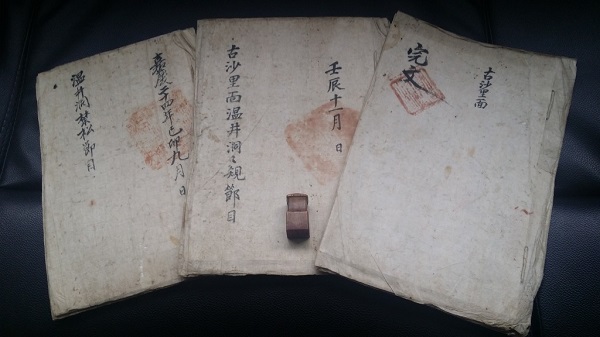 古沙里面
完文
壬辰十一月 日
古沙里面温井洞々規節目
嘉慶二十四年己卯九月 日
温井洞禁松節目